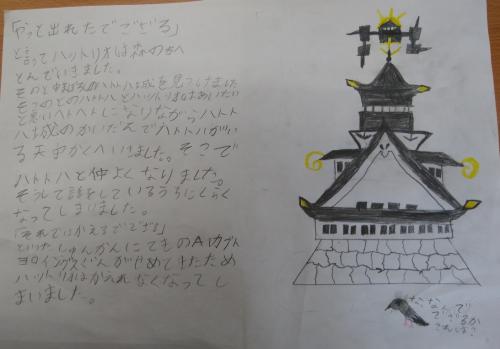 「やっと出れたでござる」
と言ってハットリオは森の方へ
とんでいきました。
そのと中はろかハトハ城を見つけました
そのとのハトハとハットリオはあいたい
と思いヘトヘトになりながらハトト
ハ城のかいだんでハトトハがい
る天しかくへいきました。そこで
ハトトハと仲よくなりました。
そうして話をしているうちにしらく
なってしまいました。
「それではかえるでござる」
といったしゅんかんにてきのAカブト
ヨロイングスぐんがせめてきたため
ハットリオはかえれなくなってし
まいました。
なんなんで
ござるか
これは?